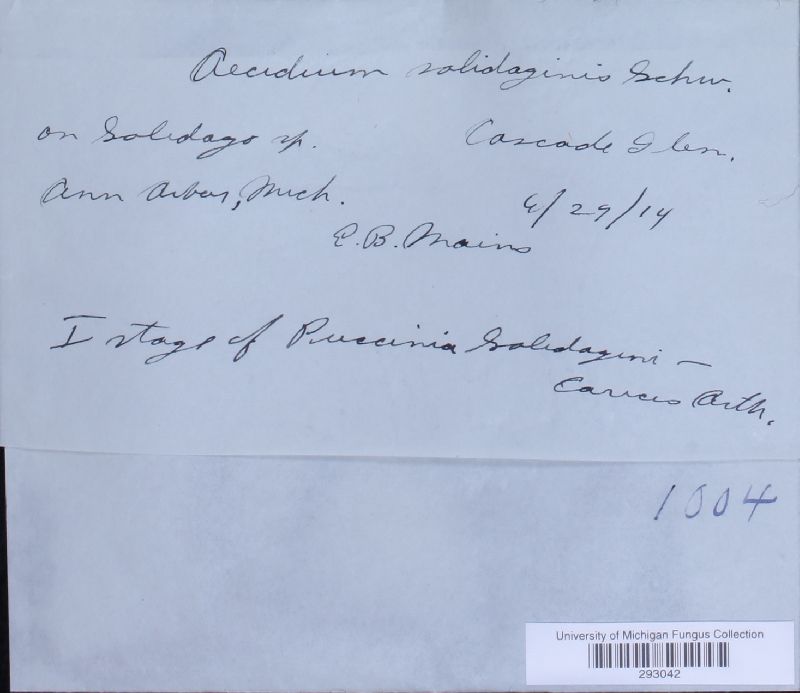 Aecidium solidaginis Schw.
on Solidago sp. Cascade Glen.
Ann Arbor, Mich. 6/29/14
E. B. Mains
I stage of Puccinia Solidagini –
Caricis Arth.
1004
University of Michigan Fungus Collection
293042